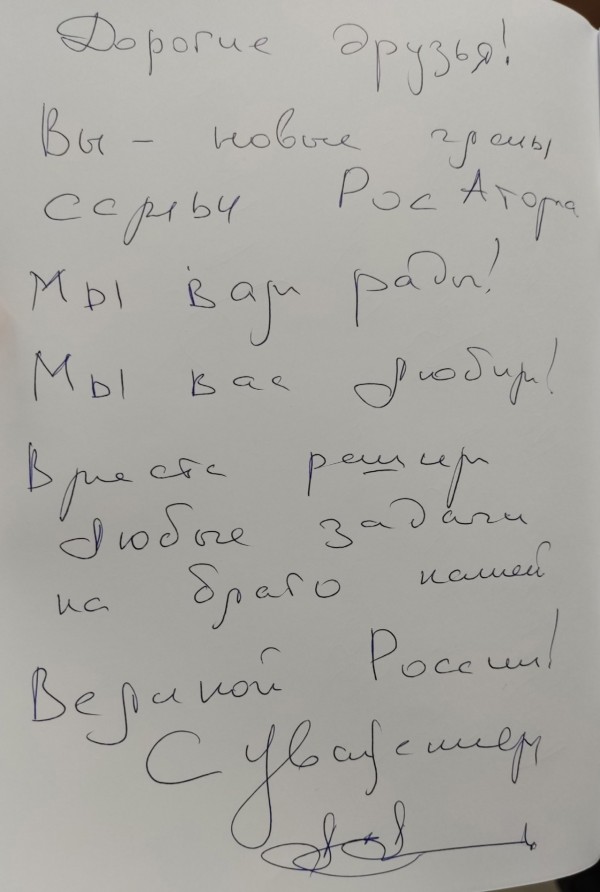 Дорогие друзья!
Вы - новые члены
семьи РосАтома
Мы вам рады!
Мы вас любим!
Вместе решим
любые задачи
на благо нашей
Великой России!
С уважением